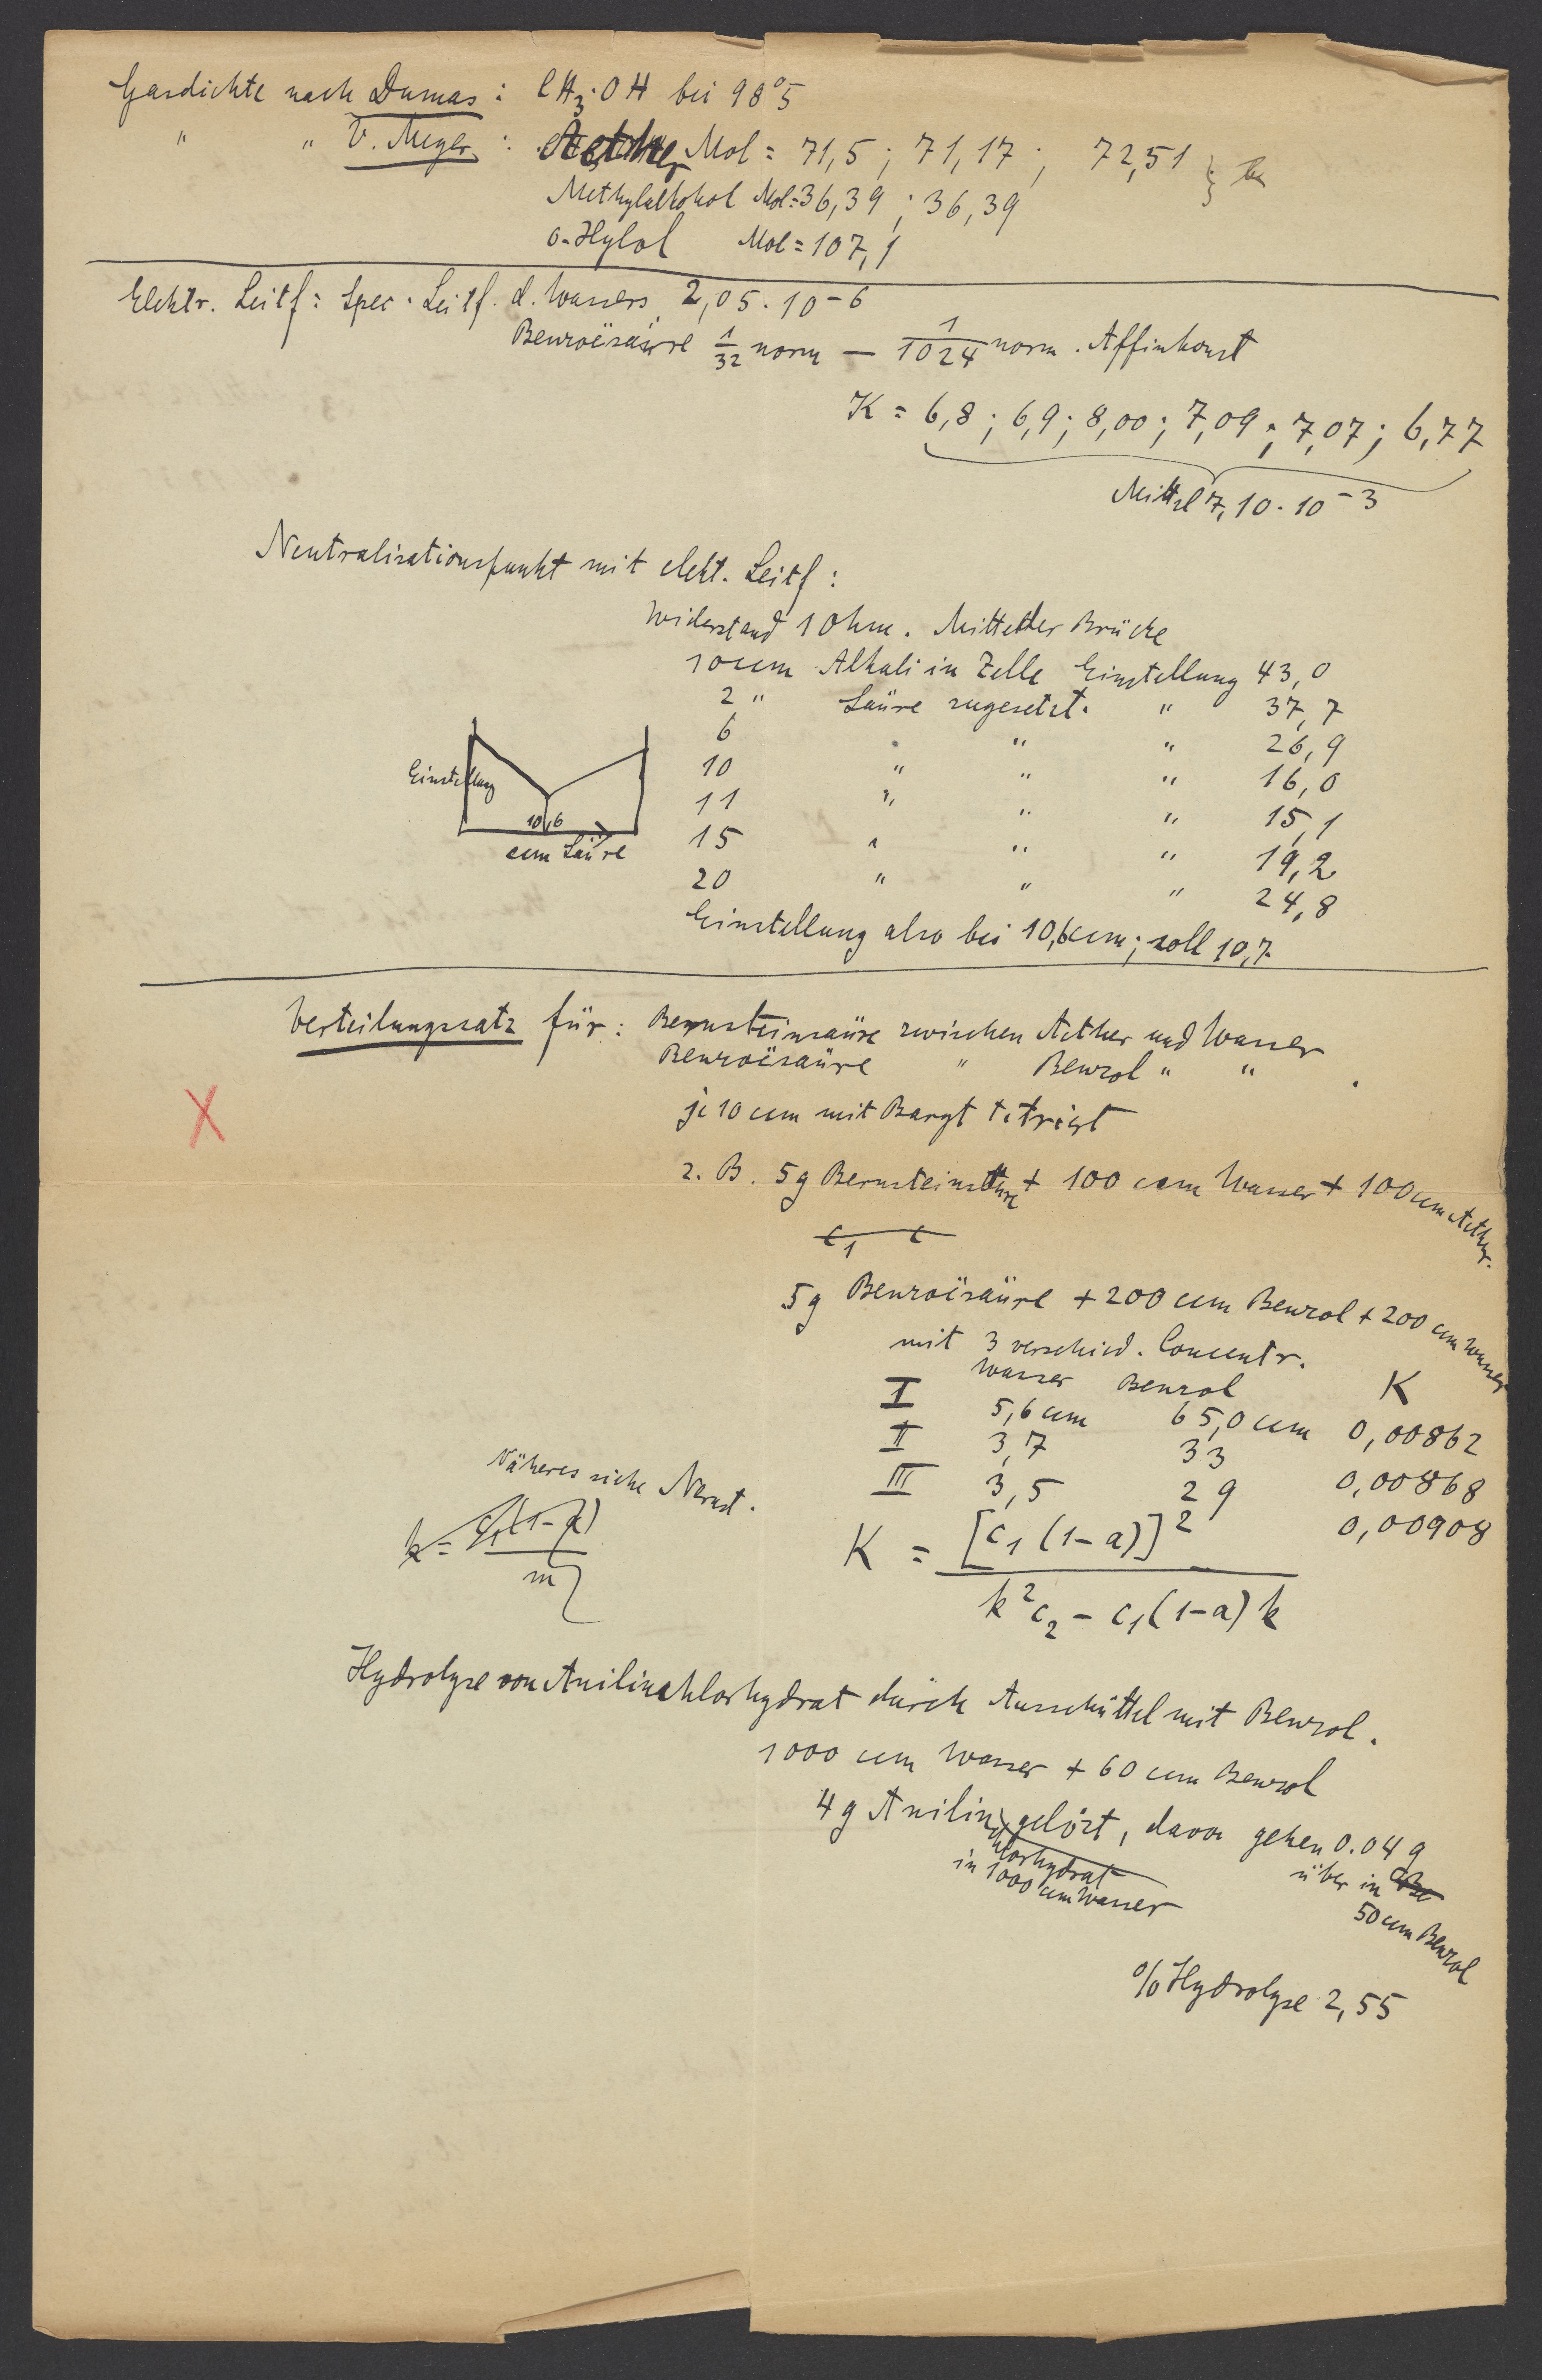 Gasdichte nach Dumas : CH3·OH bei 98°5
" " V. Meyer : Aether Mol = 71,5 ; 71,17 ; 72,51 }
Methylalkohol Mol = 36,39 ; 36,39
o-Xylol Mol = 107,1
Elektr. Leitf : Spec. Leitf. d. Wassers 2,05 . 10-6
Benzoësäure 1/32 norm — 1/1024 norm . Affinkonst
K = 6,8 ; 6,9 ; 8,00 ; 7,09 ; 7,07 ; 6,77
Mittel 7,10 . 10-3
Neutralisationspunkt mit elekt. Leitf :
Widerstand 1 Ohm . Mitte der Brücke
10 ccm Alkali in Zelle Einstellung 43,0
2 " Säure zugesetzt. " 37,7
6 " " " 26,9
10 " " " 16,0
11 " " " 15,1
15 " " " 19,2
20 " " " 24,8
Einstellung
10,6
ccm Säure
Einstellung also bei 10,6 ccm ; soll 10,7.
Verteilungssatz für : Bernsteinsäure zwischen Aether und Wasser
Benzoësäure " Benzol " " .
je 10 ccm mit Baryt titriert
X
z. B. 5 g Bernsteinsäure + 100 ccm Wasser + 100 ccm Aether.
c1 c
5 g Benzoësäure + 200 ccm Benzol + 200 ccm Wasser
mit 3 verschied. Concentr.
Wasser Benzol K
I 5,6 ccm 65,0 ccm 0,00862
II 3,7 33 0,00868
III 3,5 29 0,00908
Näheres siehe Nernst.
k = c1(1-a) / m
K = [c1 (1-a)]2 / k2c2 - c1(1-a) k
Hydrolyse von Anilinchlorhydrat durch Ausschüttel mit Benzol.
1000 ccm Wasser + 60 ccm Benzol
4 g Anilin gelöst, davon gehen 0.04 g
chlorhydrat
in 1000 ccm Wasser
über in
50 ccm Benzol
% Hydrolyse 2,55